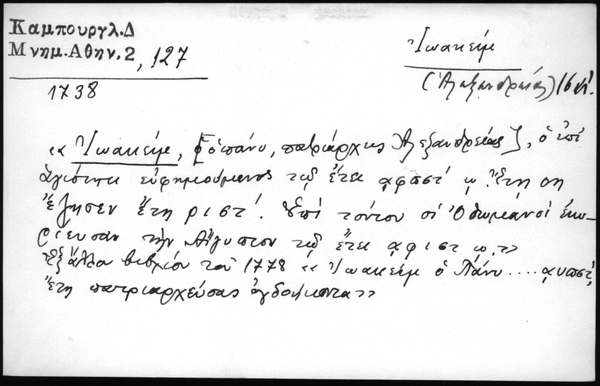 Καμπουργλ.Δ
Μνημ.Αθην.2, 127
1738
Ἰωακείμ
(Ἀλεξανδρείας) 16
« Ἰωακείμ, [ὁ πάνυ, πατριάρχης Ἀλεξανδρείας], ὁ ἐπὶ
ἁγιότητι εὐφημιούμενος τῷ ἔτει αφπστʹ ω. Ἔτη δὴ
ἔζησεν ἔτη ριστʹ. Ἐπὶ τούτου οἱ Ὀθωμανοὶ ἐκυ-
ρίευσαν τὴν Αἴγυπτον τῷ ἔτει αφιστ ω.»
Ἐξ ἄλλου βιβλίου τοῦ 1778 « Ἰωακεὶμ ὁ Πάνυ .... αυπστ,
ἔτη πατριαρχεύσας ὀγδοήκοντα»